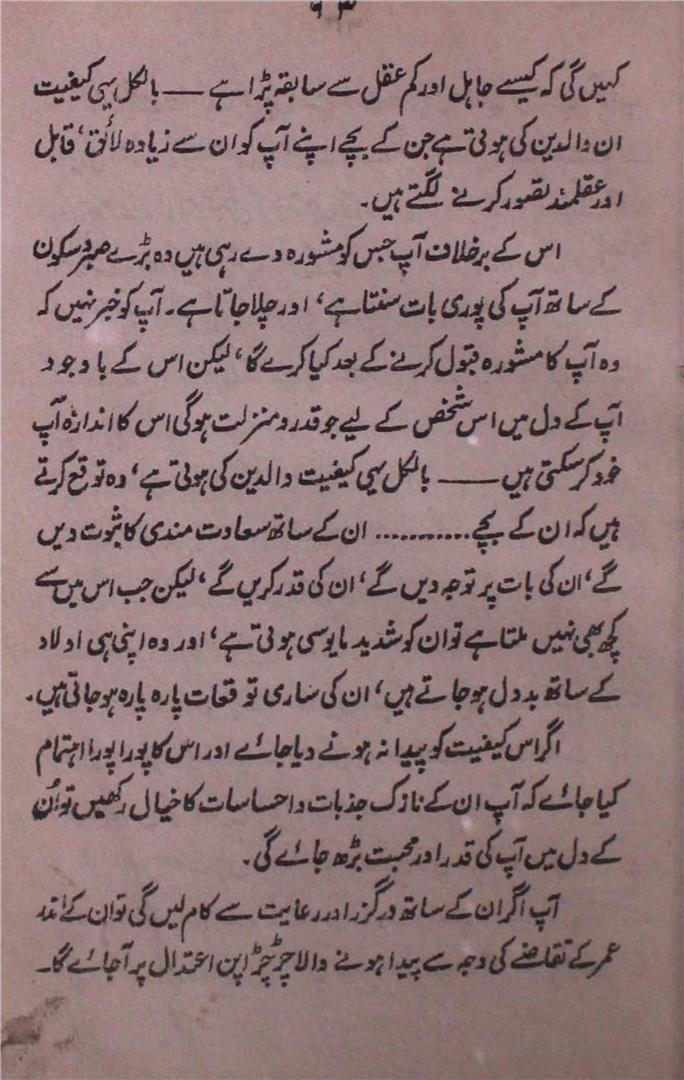 ۹۳
کہیں گی کہ کیسے جاہل اور کم عقل سے سابقہ پڑا ہے ــــ بالکل یہی کیفیت
ان والدین کی ہوتی ہے جن کے بچے اپنے آپ کو ان سے زیادہ لائق، قابل
اور عقلمند تصور کرنے لگتے ہیں۔
اس کے برخلاف آپ جس کو مشورہ دے رہی ہیں وہ بڑے صبر و سکون
کے ساتھ آپ کی پوری بات سنتا ہے، اور چلا جاتا ہے۔ آپ کو خبر نہیں کہ
وہ آپ کا مشورہ قبول کرنے کے بعد کیا کرے گا، لیکن اس کے باوجود
آپ کے دل میں اس شخص کے لیے جو قدر و منزلت ہوگی اس کا اندازہ آپ
خود کر سکتی ہیں ــــــ بالکل یہی کیفیت والدین کی ہوتی ہے، وہ توقع کرتے
ہیں کہ ان کے بچے........... ان کے ساتھ سعادت مندی کا ثبوت دیں
گے، ان کی بات پر توجہ دیں گے، ان کی قدر کریں گے، لیکن جب اس میں سے
کچھ بھی نہیں ملتا ہے تو ان کو شدید مایوسی ہوتی ہے، اور وہ اپنی ہی اولاد
کے ساتھ بددل ہو جاتے ہیں، ان کی ساری توقعات پارہ پارہ ہو جاتی ہیں۔
اگر اس کیفیت کو پیدا نہ ہونے دیا جائے اور اس کا پورا پورا اہتمام
کیا جائے کہ آپ ان کے نازک جذبات و احساسات کا خیال رکھیں تو اُن
کے دل میں آپ کی قدر اور محبت بڑھ جائے گی۔
آپ اگر ان کے ساتھ درگزر اور رعایت سے کام لیں گی تو ان کے اندر
عمر کے تقاضے کی وجہ سے پیدا ہونے والا چڑچڑا پن اعتدال پر آجائے گا۔